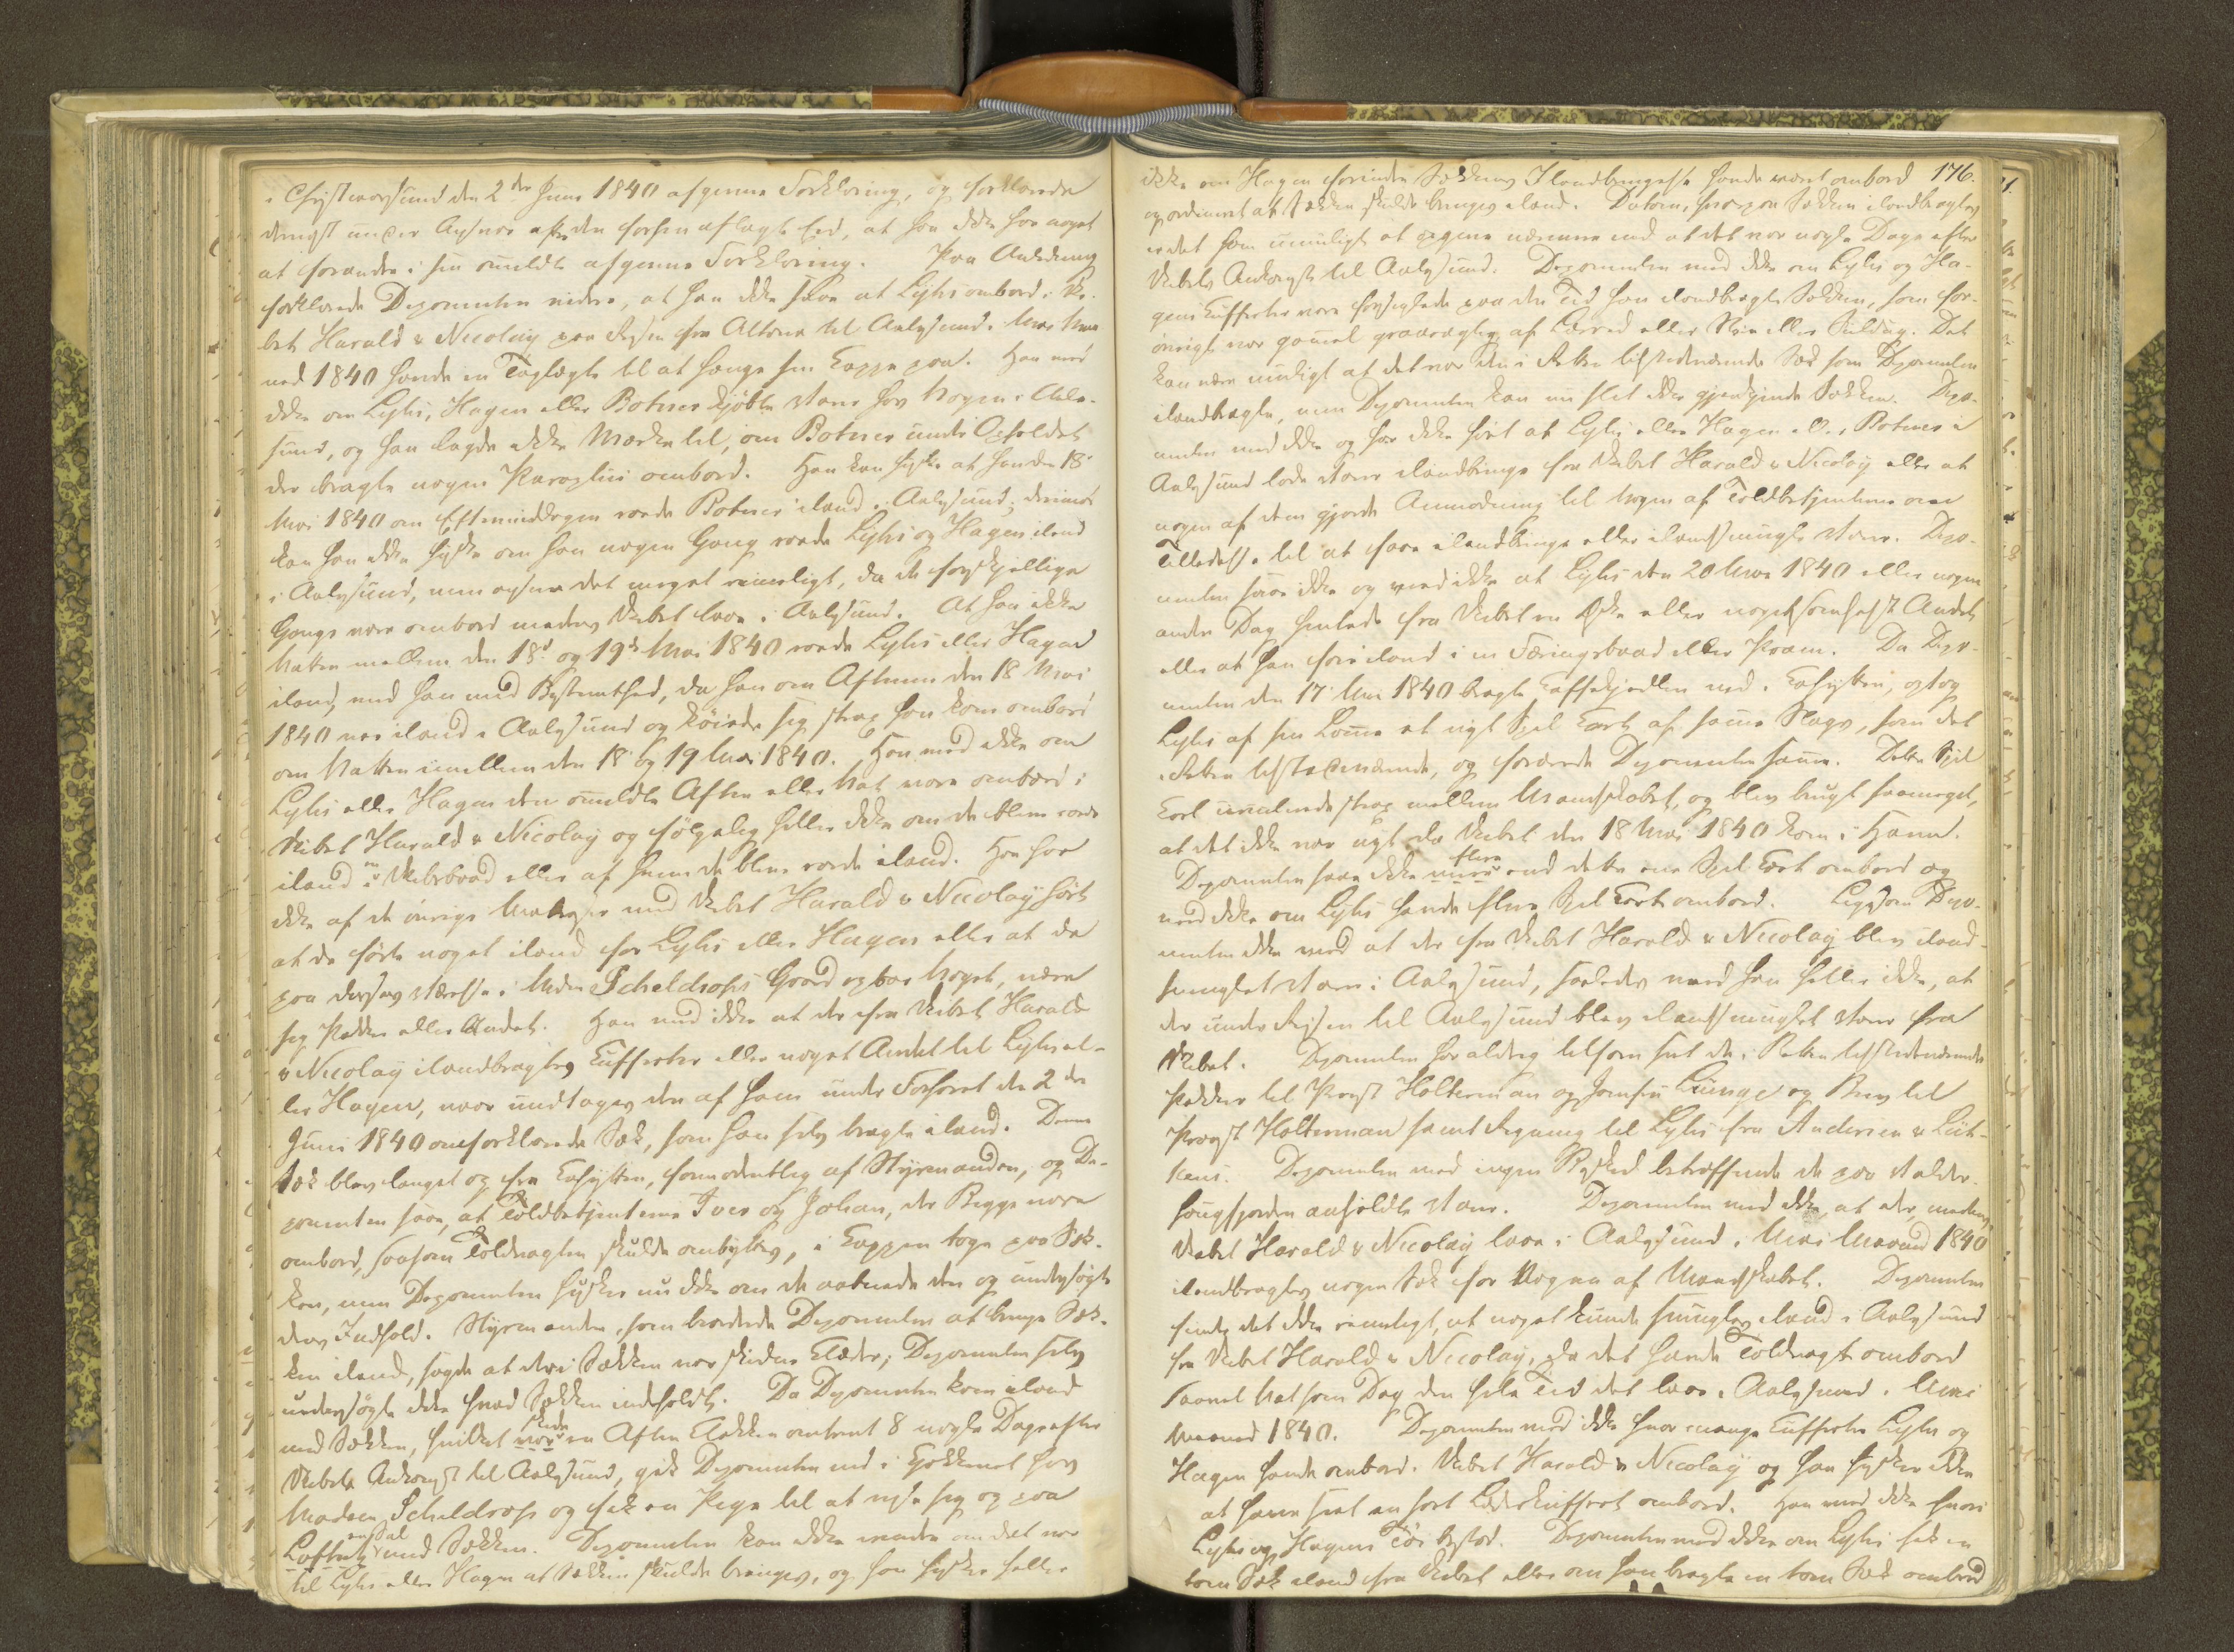 i Christiansund den 2den Juni 1840 afgivne Forklaring, og forklarede
dernæst under Ansvar efter den forhen aflagte Eed, at han ikke har noget
at forandre i sin omeldte afgivne Forklaring. Paa Anledning
forklarede Deponenten videre, at han ikke saae at Lyhs ombord i Ski-
bet Harald & Nicolay paa Reisen fra Altona til Aalesund i Mai Maa-
ned 1840 havde en Tøglægte til at hænge sin Kappe paa. Han veed
ikke om Lyhs, Hagen eller Botner kjøbte Varer hos Nogen i Aale-
sund, og han lagde ikke Mærke til, om Botner under Opholdet
der bragte nogen Paraplui ombord. Han kan huske at han den 18de
Mai 1840 om Eftermiddagen roede Botner iland i Aalesund, derimod
kan han ikke huske om han nogen Gang roede Lyhs og Hagen iland
i Aalesund, men anseer det meget rimeligt, da de forskjellige
Gange vare ombord medens Skibet laae i Aalesund. At han ikke
Natten mellem den 18de og 19de Mai 1840 roede Lyhs eller Hagen
iland, veed han med Bestemthed, da han om Aftenen den 18 Mai
1840 var iland i Aalesund og køiede sig strax han kom ombord
om Natten imellem den 18 og 19 Mai 1840. Han veed ikke om
Lyhs eller Hagen den omeldte Aften eller Nat vare ombord i
Skibet Harald & Nicolay og følgelig heller ikke om de bleve roede
iland i en Skibsbaad eller af hvem de bleve roede iland. Han har
ikke af de øvrige Matroser med Skibet Harald & Nicolay hørt
at de førte noget iland for Lyhs eller Hagen eller at de
paa deres Værelse i Madm Scheldrops Gaard opbar Noget, være
sig Pakker eller Andet. Han veed ikke at der fra Skibet Harald
& Nicolay ilandbragtes Kufferter eller noget Andet til Lyhs el-
ler Hagen, naar undtages den af ham under Forhøret den 2den
Juni 1840 omforklarede Sæk, som han selv bragte iland. Denne
Sæk blev langet op fra Kahytten, formodentlig af Styrmanden, og De-
ponenten saae, at Toldbetjentene Iver og Johan, der Begge vare
ombord, saasom Toldvagten skulde ombyttes, i Kappen toge paa Sæk-
ken, men Deponenten husker nu ikke om de aabnede den og undersøgte
dens Indhold. Styrmanden, som beordrede Deponenten at bringe Sæk-
ken iland, sagde at der i Sækken var skidne Klæder; Deponenten selv
undersøgte ikke hvad Sækken indholdt. Da Deponenten kom iland
med Sækken, hvilket var skede en Aften Klokken omtrent 8 nogle Dage efter
Skibets Ankomst til Aalesund, gik Deponenten ind i Kjøkkenet hos
Madam Scheldrop og fik en Pige til at vise sig op paa
Loftet en Sal med Sækken. Deponenten kan ikke mindes om det var
til Lyhs eller Hagen at Sækken skulde bringes, og han husker heller
ikke om Hagen forinden Sækkens Ilandbringelse havde været ombord 176.
og ordineret at Sækken skulde bringes iland. Datoen, hvorpaa Sækken ilandbragtes
er det ham umuligt at opgive nærmere end at det var nogle Dage efter
Skibets Ankomst til Aalesund. Deponenten veed ikke om Lyhs og Ha-
gens Kufferter vare forseglede paa den Tid han ilandbragte Sækken, som for-
øvrigt var gammel graaagtig af Lærred eller Strie eller Seildug. Det
kan være muligt at det var den i Retten tilstedeværende Sæk som Deponenten
ilandbragte, men Deponenten kan nu slet ikke gjenkjende Sækken. Depo-
nenten veed ikke og har ikke hørt at Lyhs eller Hagen eller Botner i
Aalesund lode Varer ilandbringe fra Skibet Harald & Nicolay eller at
nogen af dem gjorde Anmodning til Nogen af Toldbetjentene om
Tilladelse til at faae ilandbringe eller ilandsmugle Varer. Depo-
nenten saae ikke og veed ikke at Lyhs den 20 Mai 1840 eller nogen
anden Dag hentede fra Skibet en Æske eller nogetsomhelst Andet
eller at han foer iland i en Færingsbaad eller Pram. Da Depo-
nenten den 17 Mai 1840 bragte Kaffekjedlen ned i Kahytten, optog
Lyhs af sin Lomme et nyt Spil Kort af samme Slags, som det
i Retten tilstedeværende, og forærede Deponenten samme. Dette Spil
Kort circulerede strax mellem Mandskabet, og blev brugt saameget,
at det ikke var nyt da Skibet den 18 Mai 1840 kom i Havn.
Deponenten saae ikke mere flere end dette ene Spil Kort ombord og
veed ikke om Lyhs havde flere Spil Kort ombord. Ligesom Depo-
nenten ikke veed at der fra Skibet Harald & Nicolay blev iland-
smuglet Varer i Aalesund, saaledes veed han heller ikke, at
der under Reisen til Aalesund blev ilandsmuglet Varer fra
Skibet. Deponenten har aldrig tilforn seet de i Retten tilstedeværende
Pakker til Provst Holterman og Jomfru Lunge og Brev til
Provst Holterman samt Regning til Lyhs fra Andersen & Lüt-
kens. Deponenten veed ingen Besked betræffende de paa Valder-
houg fjorden anholdte Varer. Deponenten veed ikke, at der, medens
Skibet Harald & Nicolay laae i Aalesund i Mai Maaned 1840
ilandbragtes nogen Sæk for Nogen af Mandskabet. Deponenten
finder det ikke rimeligt, at noget kunde smugles iland i Aalesund
fra Skibet Harald & Nicolay, da det havde Toldvagt ombord
saavel Nat som Dag den hele Tid det laae i Aalesund i Mai
Maaned 1840. Deponenten veed ikke hvor mange Kufferter Lyhs og
Hagen havde ombord i Skibet Harald & Nicolay og han husker ikke
at have seet en sort Læderkuffert ombord. Han veed ikke hvori
Lyhs og Hagens Tøi bestod. Deponenten veed ikke om Lyhs fik en
tom Sæk iland fra Skibet eller om han bragte en tom Sæk ombord